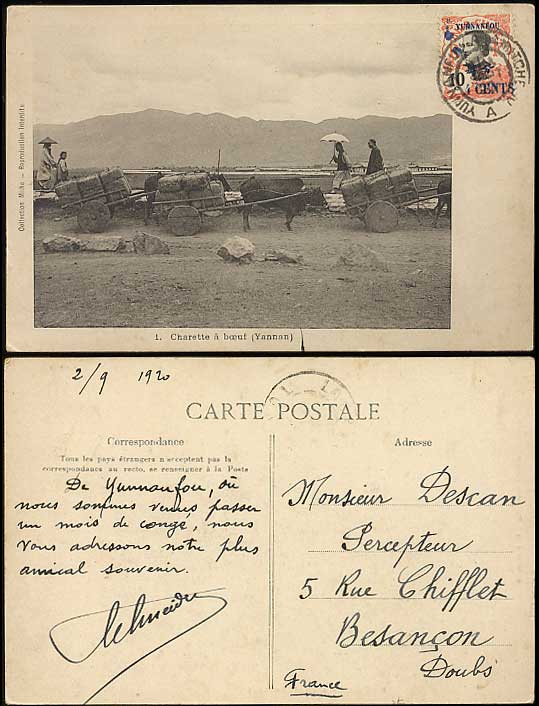 YUNNANFOU
10
4 CENTS
A
Collection Mihé — Reproduction Interdite
1. Charette à bœuf (Yannan)
2/9 1920
CARTE POSTALE
Correspondance
Adresse
Tous les pays étrangers n'acceptent pas la
correspondance au recto, se renseigner à la Poste
De Yunnanfou, où
nous sommes venus passer
un mois de congé, nous
vous adressons notre plus
amical souvenir.
Schneider
Monsieur Descan
Percepteur
5 Rue Chifflet
Besançon
Doubs
France